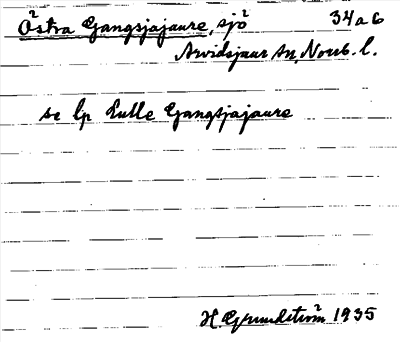 Östra Gangsjajaure, sjö 34 a 6
Arvidsjaur sn, Norrb. l.
se lp Lulle Gangsjajaure
H. Grundström 1935